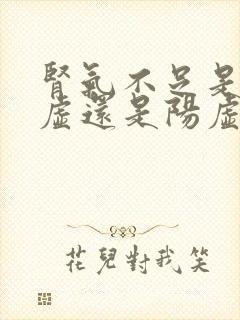 腎氣不足是
虛還是陽虛
花兒對我笑